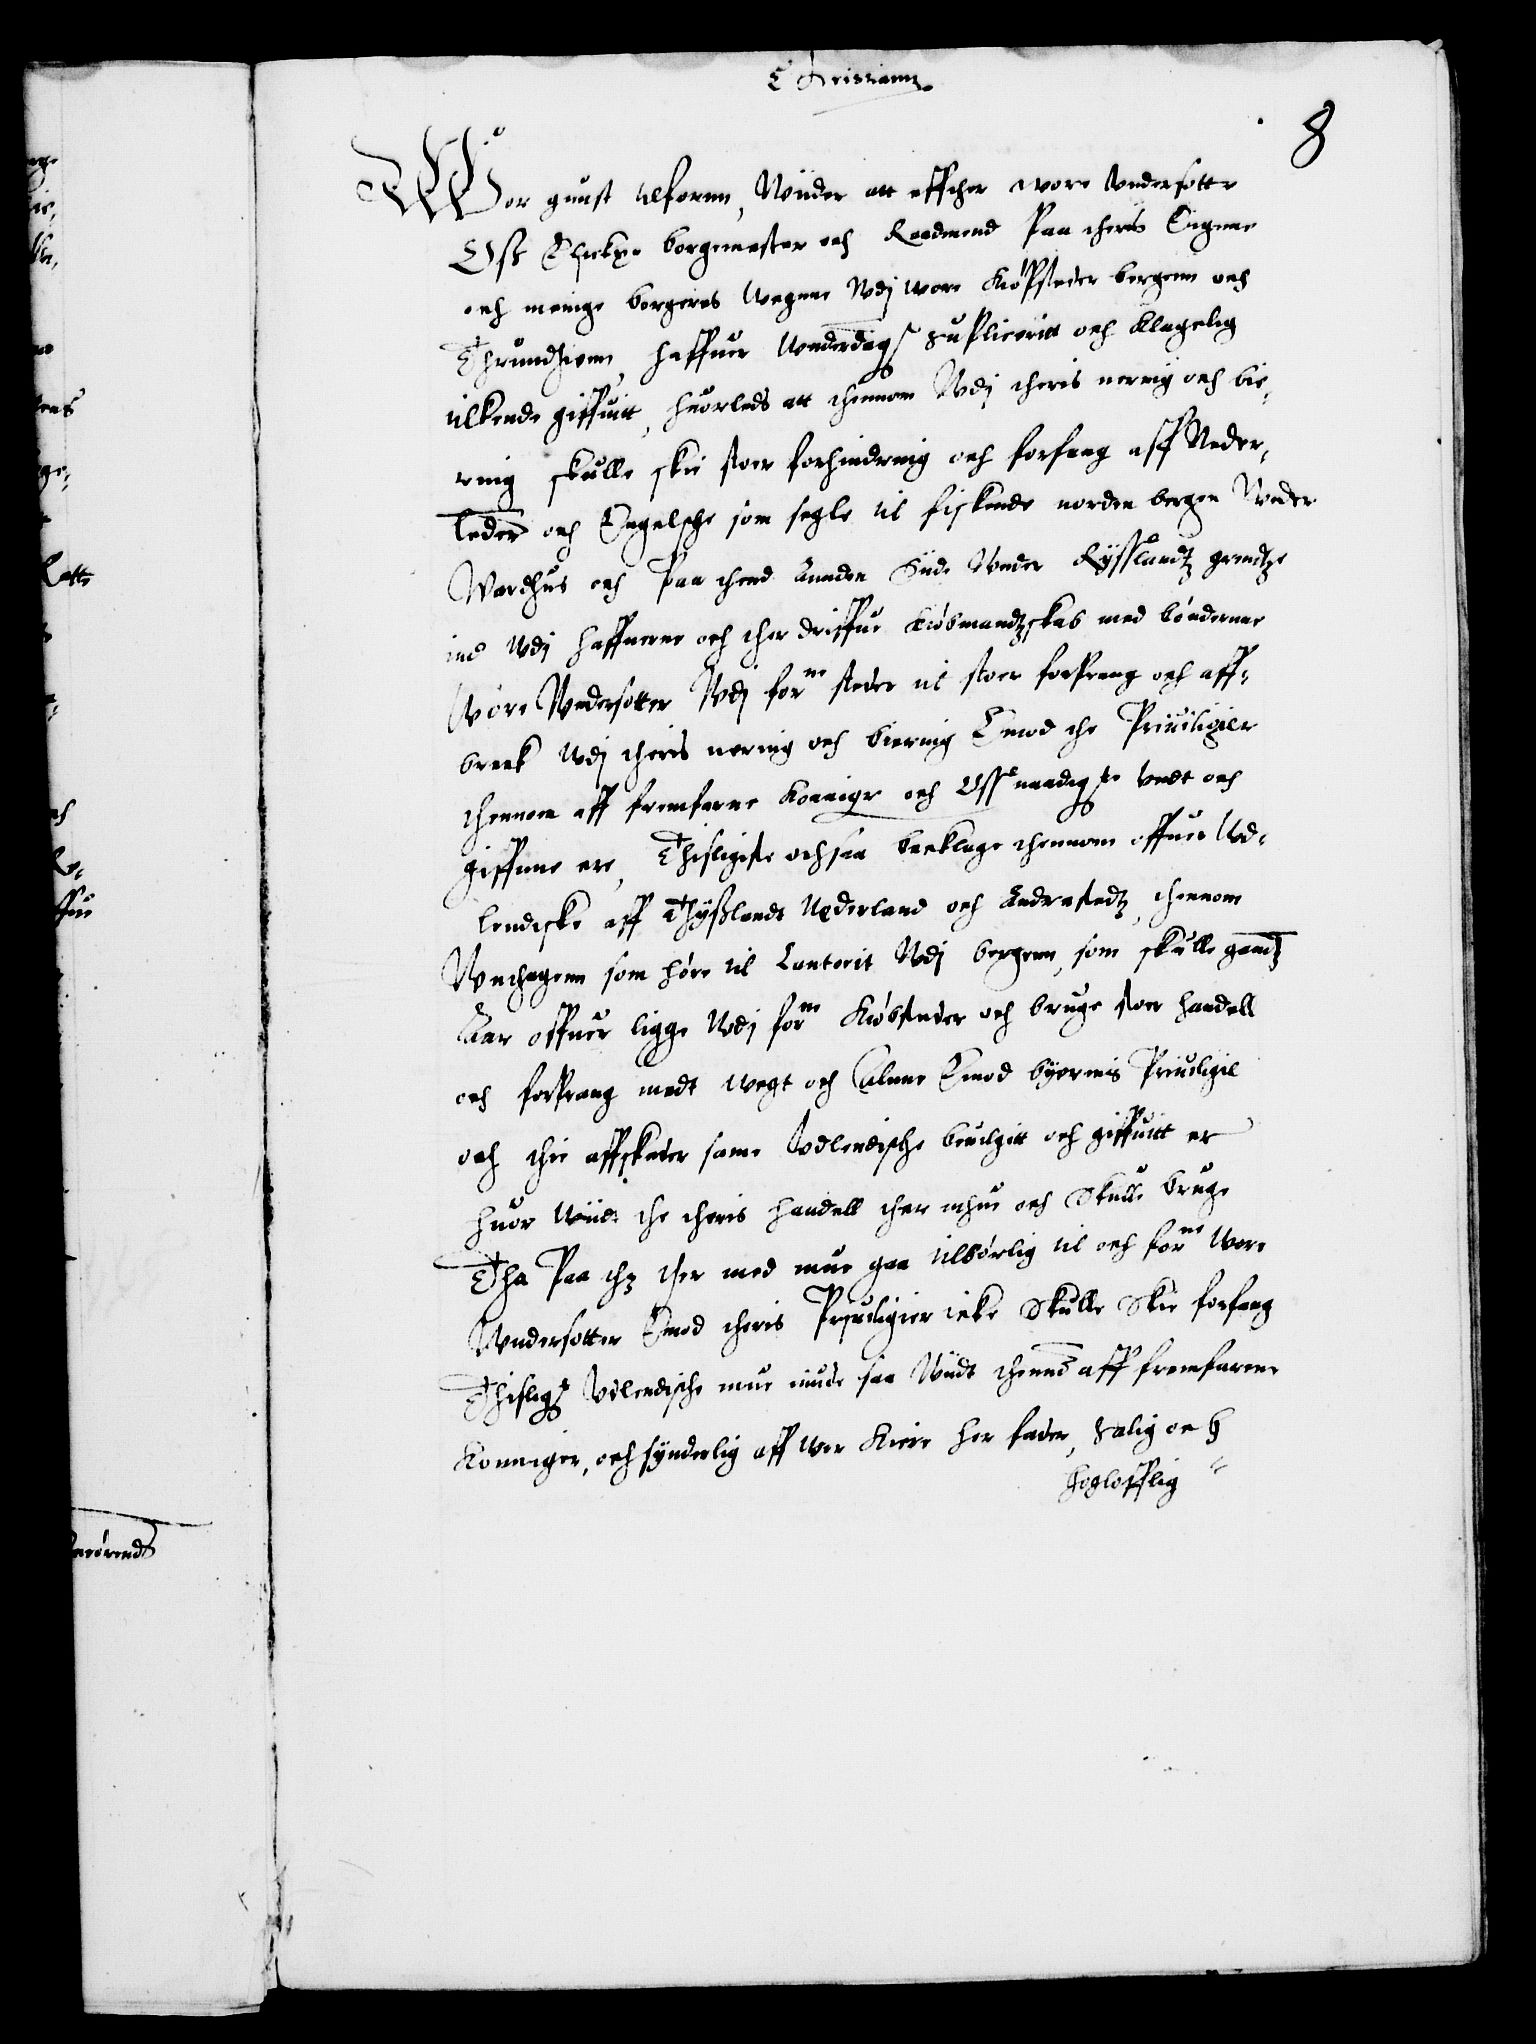 Christiann
8
Wor gunst tilfornn, Wiider att effther wore Undersotte
Oss Elskte borgemester och Raadmend Paa theris Eigne
och menige borgeres Wegne Udj wore Kiøpsteder bergenn och
Thrundhiem, haffuer Unnderdags suplicerit och klagelig
tilkende giffuitt, huorleds att thennom Udj theris nering och bie,
ring skulle skie stoer forhindring och forfang aff Neder,
leder och Engelsche som segle til fiskende norden bergen Under
Wardhus och Paa thend Anden Siide Under Rysslandtz grendtze
ind Udj haffnerne och ther driffue Kiøbmandtzskab med bønderne
Wore Undersotter Udj forne steder til stoer forprang och aff,
breck Udj theris nering och biering Emod the Priuiligier
thennom aff fremfarne Konnige och Oss naadigste Undt och
giffune ere, Thisligiste ochsaa beclage thennom offuer Ud,
lendiske aff Thysslandt Nederland och Andrestedtz, thennom
Unthagenn som høre til Contorit Udj bergenn, som skulle gandtz
Aar offuer ligge Udj forne Kiøbsteder och bruge stoer handell
och forprang medt wegt och Alnne Emod byernis Priuiligie
och thie affskeder same Udlendische beuilgitt och giffuitt er
huor Wiide the theris handell ther mhue och Skulle bruge
Tha Paa thz ther med mue gaa tilbørlig til och forne Wore
Undersotter Emod theris Priuiligier icke Skulle Skie forfang
Thisligst Udlendische mue niude saa Wiidt thennd aff fremfarne
Konniger, och synderlig aff Wor Kiere Her fader, Salig och
Høglofflig